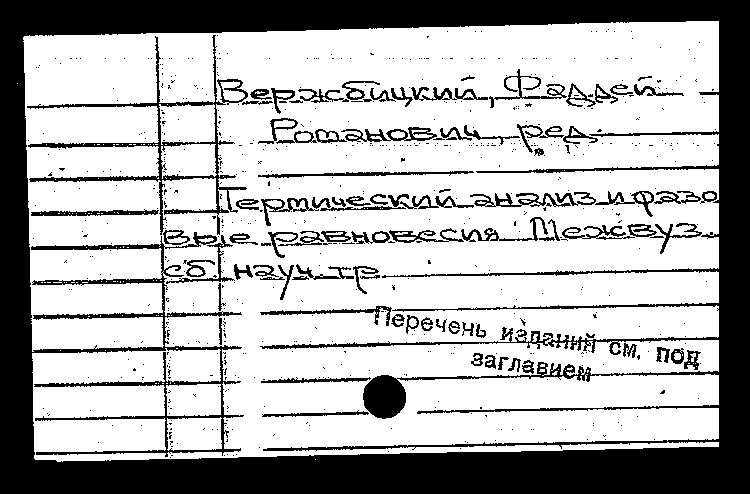 Вержбицкий, Фаддей
Романович, ред.
Термический анализ и фазо
вые равновесия Межвуз.
сб. науч. тр.
Перечень изданий см. под
заглавием